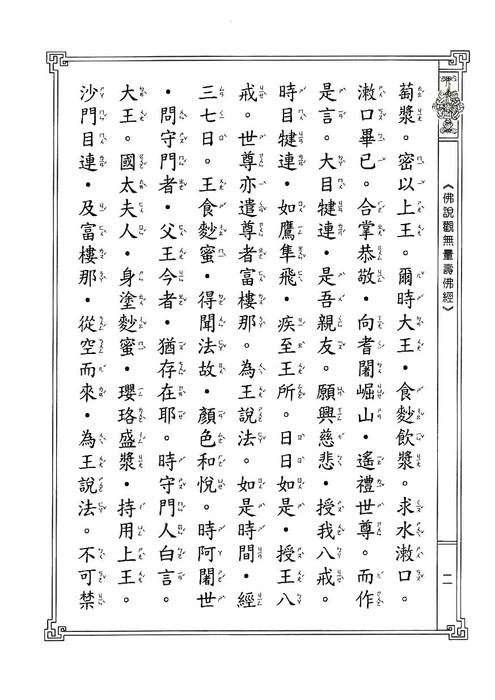 《佛說觀無量壽佛經》
二
萄漿。密以上王。爾時大王・食麨飲漿。求水漱口。
漱口畢已。合掌恭敬・向耆闍崛山・遙禮世尊。而作
是言。大目犍連・是吾親友。願興慈悲・授我八戒。
時目犍連・如鷹隼飛・疾至王所。日日如是・授王八
戒。世尊亦遣尊者富樓那。為王說法。如是時間・經
三七日。王食麨蜜・得聞法故・顏色和悅。時阿闍世
・問守門者・父王今者・猶存在耶。時守門人白言。
大王。國太夫人・身塗麨蜜・瓔珞盛漿・持用上王。
沙門目連・及富樓那・從空而來・為王說法。不可禁